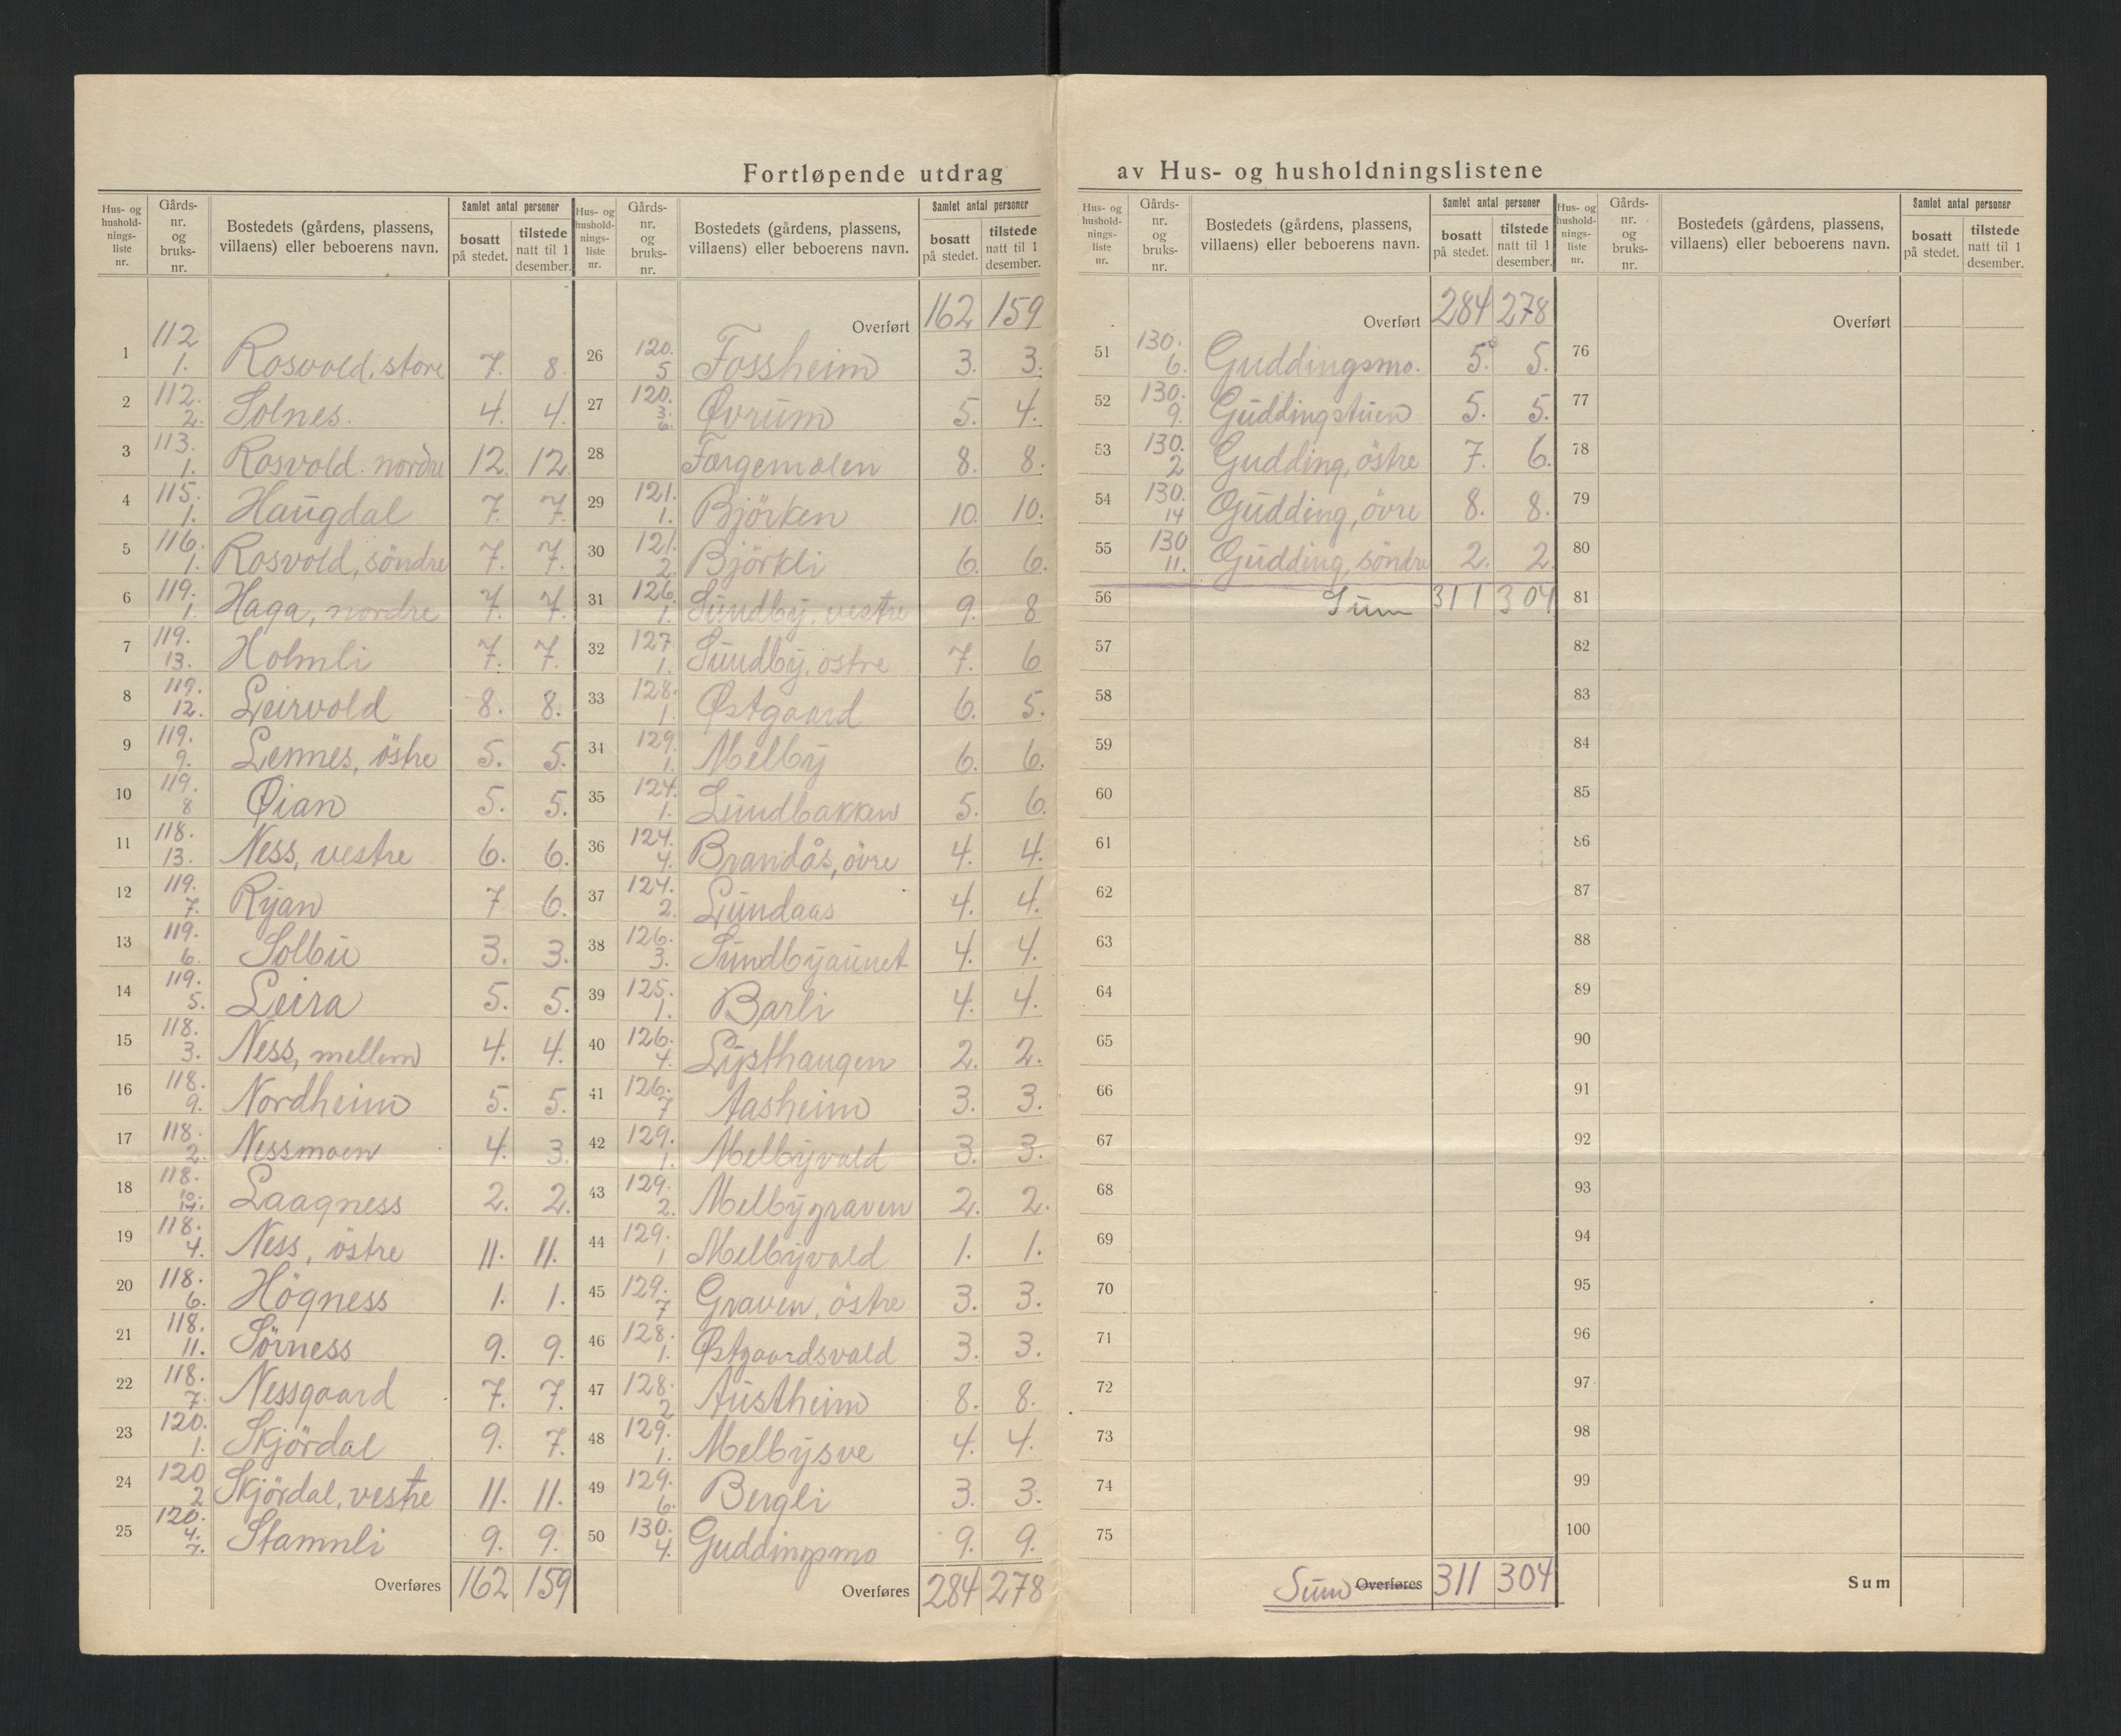 Fortløpende utdrag av Hus- og husholdningslistene
Hus- og hushold-nings-liste nr. | Gårds-nr. og bruks-nr. | Bostedets (gårdens, plassens, villaens) eller beboerens navn. | Samlet antal personer | bosatt på stedet. | tilstede natt til 1 desember.
1 | 112. 1. | Rosvold, store | 7. | 8.
2 | 112. 2. | Solnes. | 4. | 4.
3 | 113. 1. | Rosvold nordre | 12. | 12.
4 | 115. 1. | Haugdal | 7. | 7.
5 | 116. 1. | Rosvold, söndre | 7. | 7.
6 | 119. 1. | Haga, nordre | 7. | 7.
7 | 119. 13. | Holmli | 7. | 7.
8 | 119. 12. | Leirvold | 8. | 8.
9 | 119. 9. | Lennes, östre | 5. | 5.
10 | 119. 8 | Øian | 5. | 5.
11 | 118. 13. | Ness, vestre | 6. | 6.
12 | 119. 7. | Ryan | 7 | 6.
13 | 119. 6. | Solbu | 3. | 3.
14 | 119. 5. | Leira | 5. | 5.
15 | 118. 3. | Ness, mellem | 4. | 4.
16 | 118. 9. | Nordheim | 5. | 5.
17 | 118. 2. | Nessmoen | 4. | 3.
18 | 118. 10. 14. | Laagness | 2. | 2.
19 | 118. 4. | Ness, östre | 11. | 11.
20 | 118. 6. | Högness | 1. | 1.
21 | 118. 11. | Sörness | 9. | 9.
22 | 118. 7. | Nessgaard | 7. | 7.
23 | 120. 1. | Skjördal | 9. | 7.
24 | 120 2 | Skjördal, vestre | 11. | 11.
25 | 120. 4. 7. | Stamnli | 9. | 9.
Overføres | 162 | 159
Hus- og hushold-nings-liste nr. | Gårds-nr. og bruks-nr. | Bostedets (gårdens, plassens, villaens) eller beboerens navn. | Samlet antal personer | bosatt på stedet. | tilstede natt til 1 desember.
Overført | 162 | 159
26 | 120. 5 | Fossheim | 3. | 3.
27 | 120. 3. 6. | Øvrum | 5. | 4.
28 | Færgemoen | 8. | 8.
29 | 121. 1. | Björken | 10. | 10.
30 | 121. 2. | Björkli | 6. | 6.
31 | 126. 1. | Sundby, vestre | 9. | 8
32 | 127 1. | Sundby, östre | 7. | 6
33 | 128. 1. | Østgaard | 6. | 5.
34 | 129. 1. | Melby | 6. | 6.
35 | 124. 1. | Lundbakken | 5. | 6.
36 | 124. 4. | Brandås, övre | 4. | 4.
37 | 124. 2. | Lundaas | 4. | 4.
38 | 126. 3. | Sundbyaunet | 4. | 4.
39 | 125. 1. | Barli | 4. | 4.
40 | 126. 4. | Lysthaugen | 2. | 2.
41 | 126. 7 | Aasheim | 3. | 3.
42 | 129. 1. | Melbyvald | 3. | 3.
43 | 129. 2. | Melbygraven | 2. | 2.
44 | 129. 1 | Melbyvald | 1. | 1.
45 | 129. 7 | Graven, östre | 3. | 3.
46 | 128. 1. | Østgaardsvald | 3. | 3.
47 | 128. 2 | Austheim | 8. | 8.
48 | 129. 1. | Melbysve | 4. | 4.
49 | 129. 6. | Bergli | 3. | 3.
50 | 130. 4. | Guddingsmo | 9. | 9.
Overføres | 284 | 278
Hus- og hushold-nings-liste nr. | Gårds-nr. og bruks-nr. | Bostedets (gårdens, plassens, villaens) eller beboerens navn. | Samlet antal personer | bosatt på stedet. | tilstede natt til 1 desember.
Overført | 284 | 278
51 | 130. 6. | Guddingsmo. | 5. | 5.
52 | 130. 9. | Guddingstuen | 5. | 5.
53 | 130. 2 | Gudding, östre | 7. | 6.
54 | 130. 14 | Gudding, övre | 8. | 8.
55 | 130 11. | Gudding, söndre | 2. | 2
56 | Sum | 311 | 304
57
58
59
60
61
62
63
64
65
66
67
68
69
70
71
72
73
74
75
Sum Overføres | 311 | 304
Hus- og hushold-nings-liste nr. | Gårds-nr. og bruks-nr. | Bostedets (gårdens, plassens, villaens) eller beboerens navn. | Samlet antal personer | bosatt på stedet. | tilstede natt til 1 desember.
Overført
76
77
78
79
80
81
82
83
84
85
86
87
88
89
90
91
92
93
94
95
96
97
98
99
100
Sum